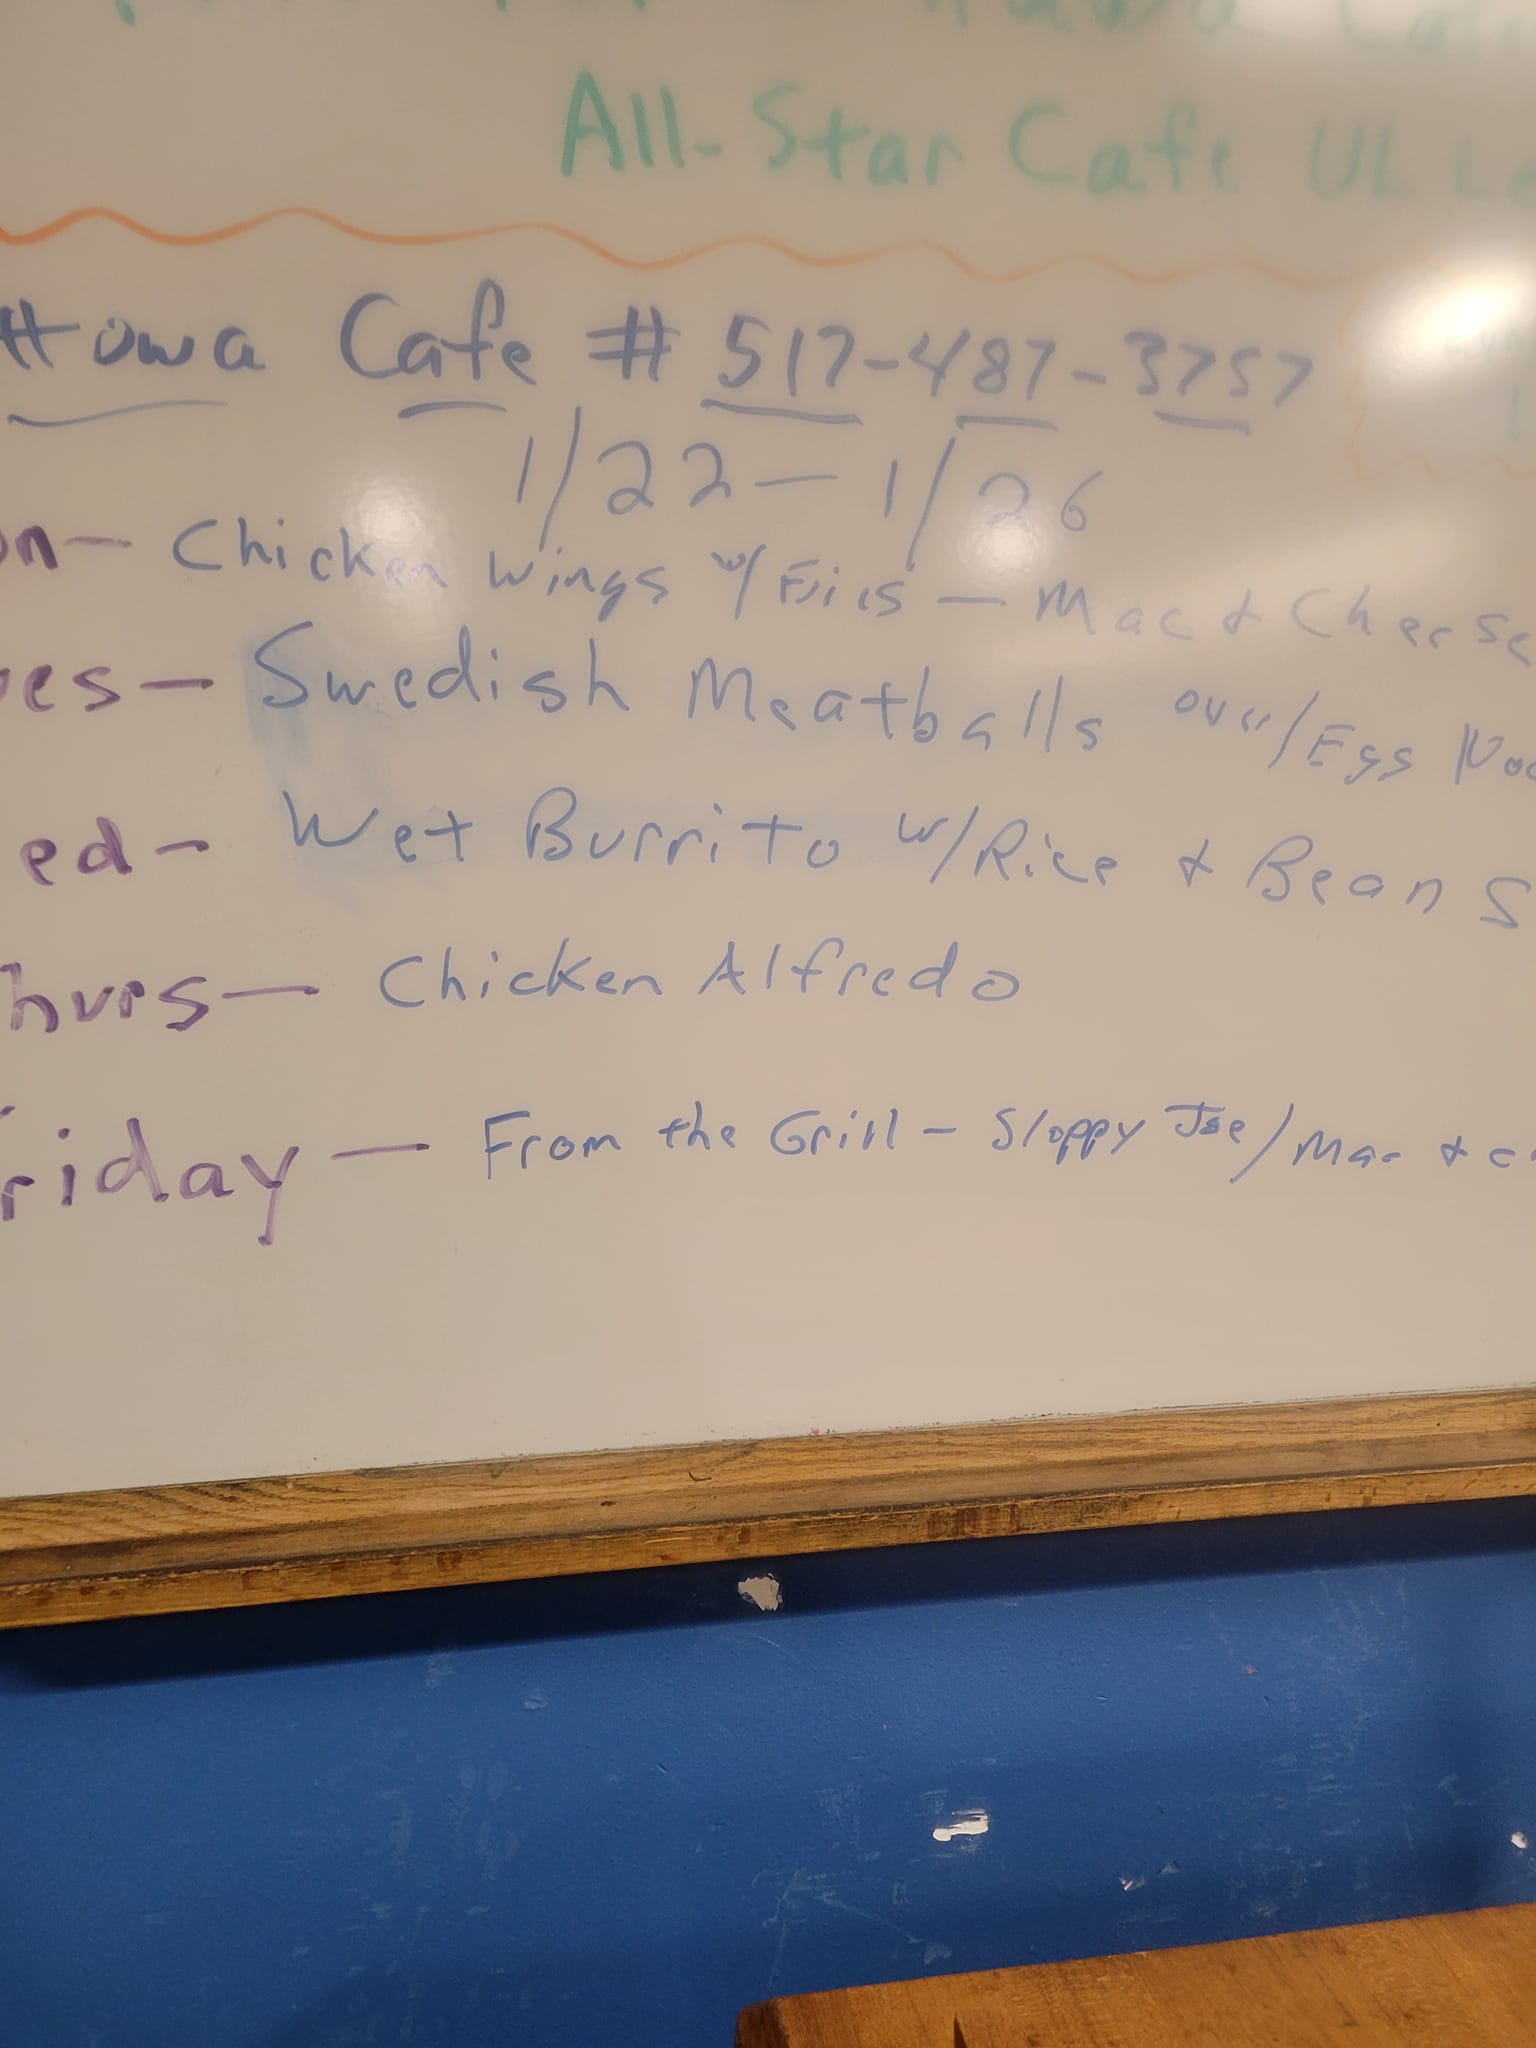 All-Star Cafe UL L
ttowa Cafe # 517-487-3757
1/22 - 1/26
on - Chicken Wings w/ Fries - Mac & Cheese
ues - Swedish Meatballs over/Egg Noo
ed - Wet Burrito w/Rice & Beans
hurs - Chicken Alfredo
Friday - From the Grill - Sloppy Joe/Mac & c